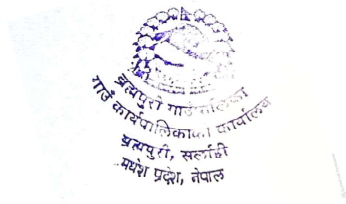 ब्रह्मपुरी गाउँपालिका
गाउँ कार्यपालिकाको कार्यालय
ब्रह्मपुरी, सर्लाही
मधेश प्रदेश, नेपाल